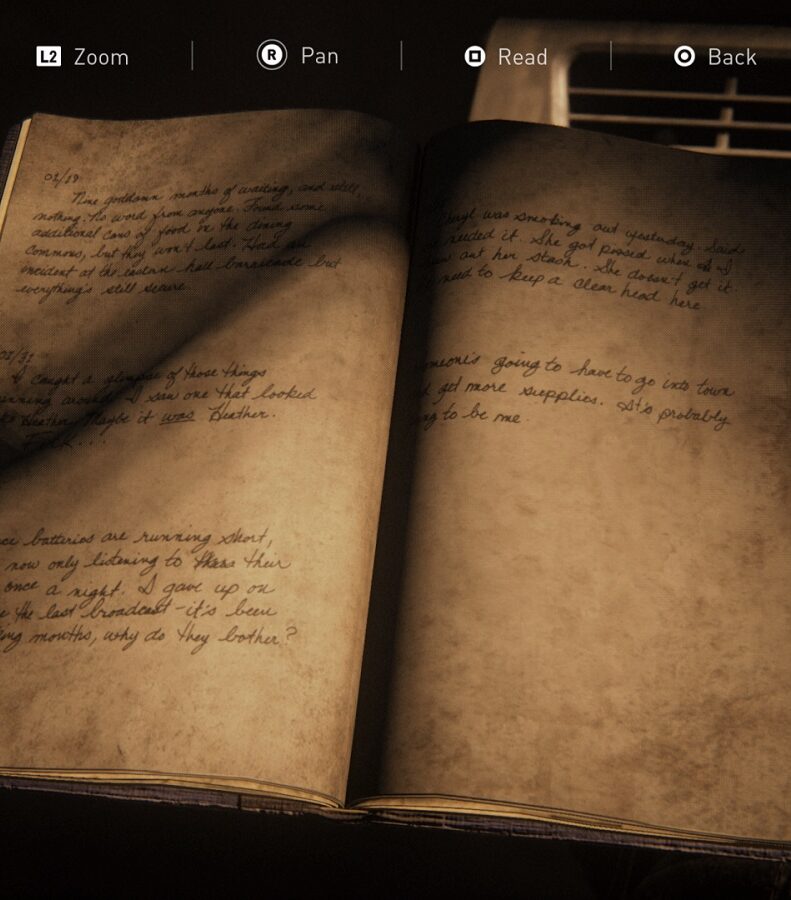 L2 Zoom
R Pan
Read
Back
01/19
Nine goddamn months of waiting, and still...
nothing. No word from anyone. Found some
additional cans of food in the dining
commons, but they won't last. Had an
incident at the eastern hall barricade but
everything's still secure.
01/31
I caught a glimpse of those things
running around. I saw one that looked
Heather. Maybe it was Heather.
batteries are running short,
now only listening to their
once a night. I gave up on
the last broadcast - it's been
months, why do they bother?
was smoking out yesterday. Said
needed it. She got pissed when I
out her stash. She doesn't get it.
need to keep a clear head here
going to have to go into town
get more supplies. It's probably
to be me.